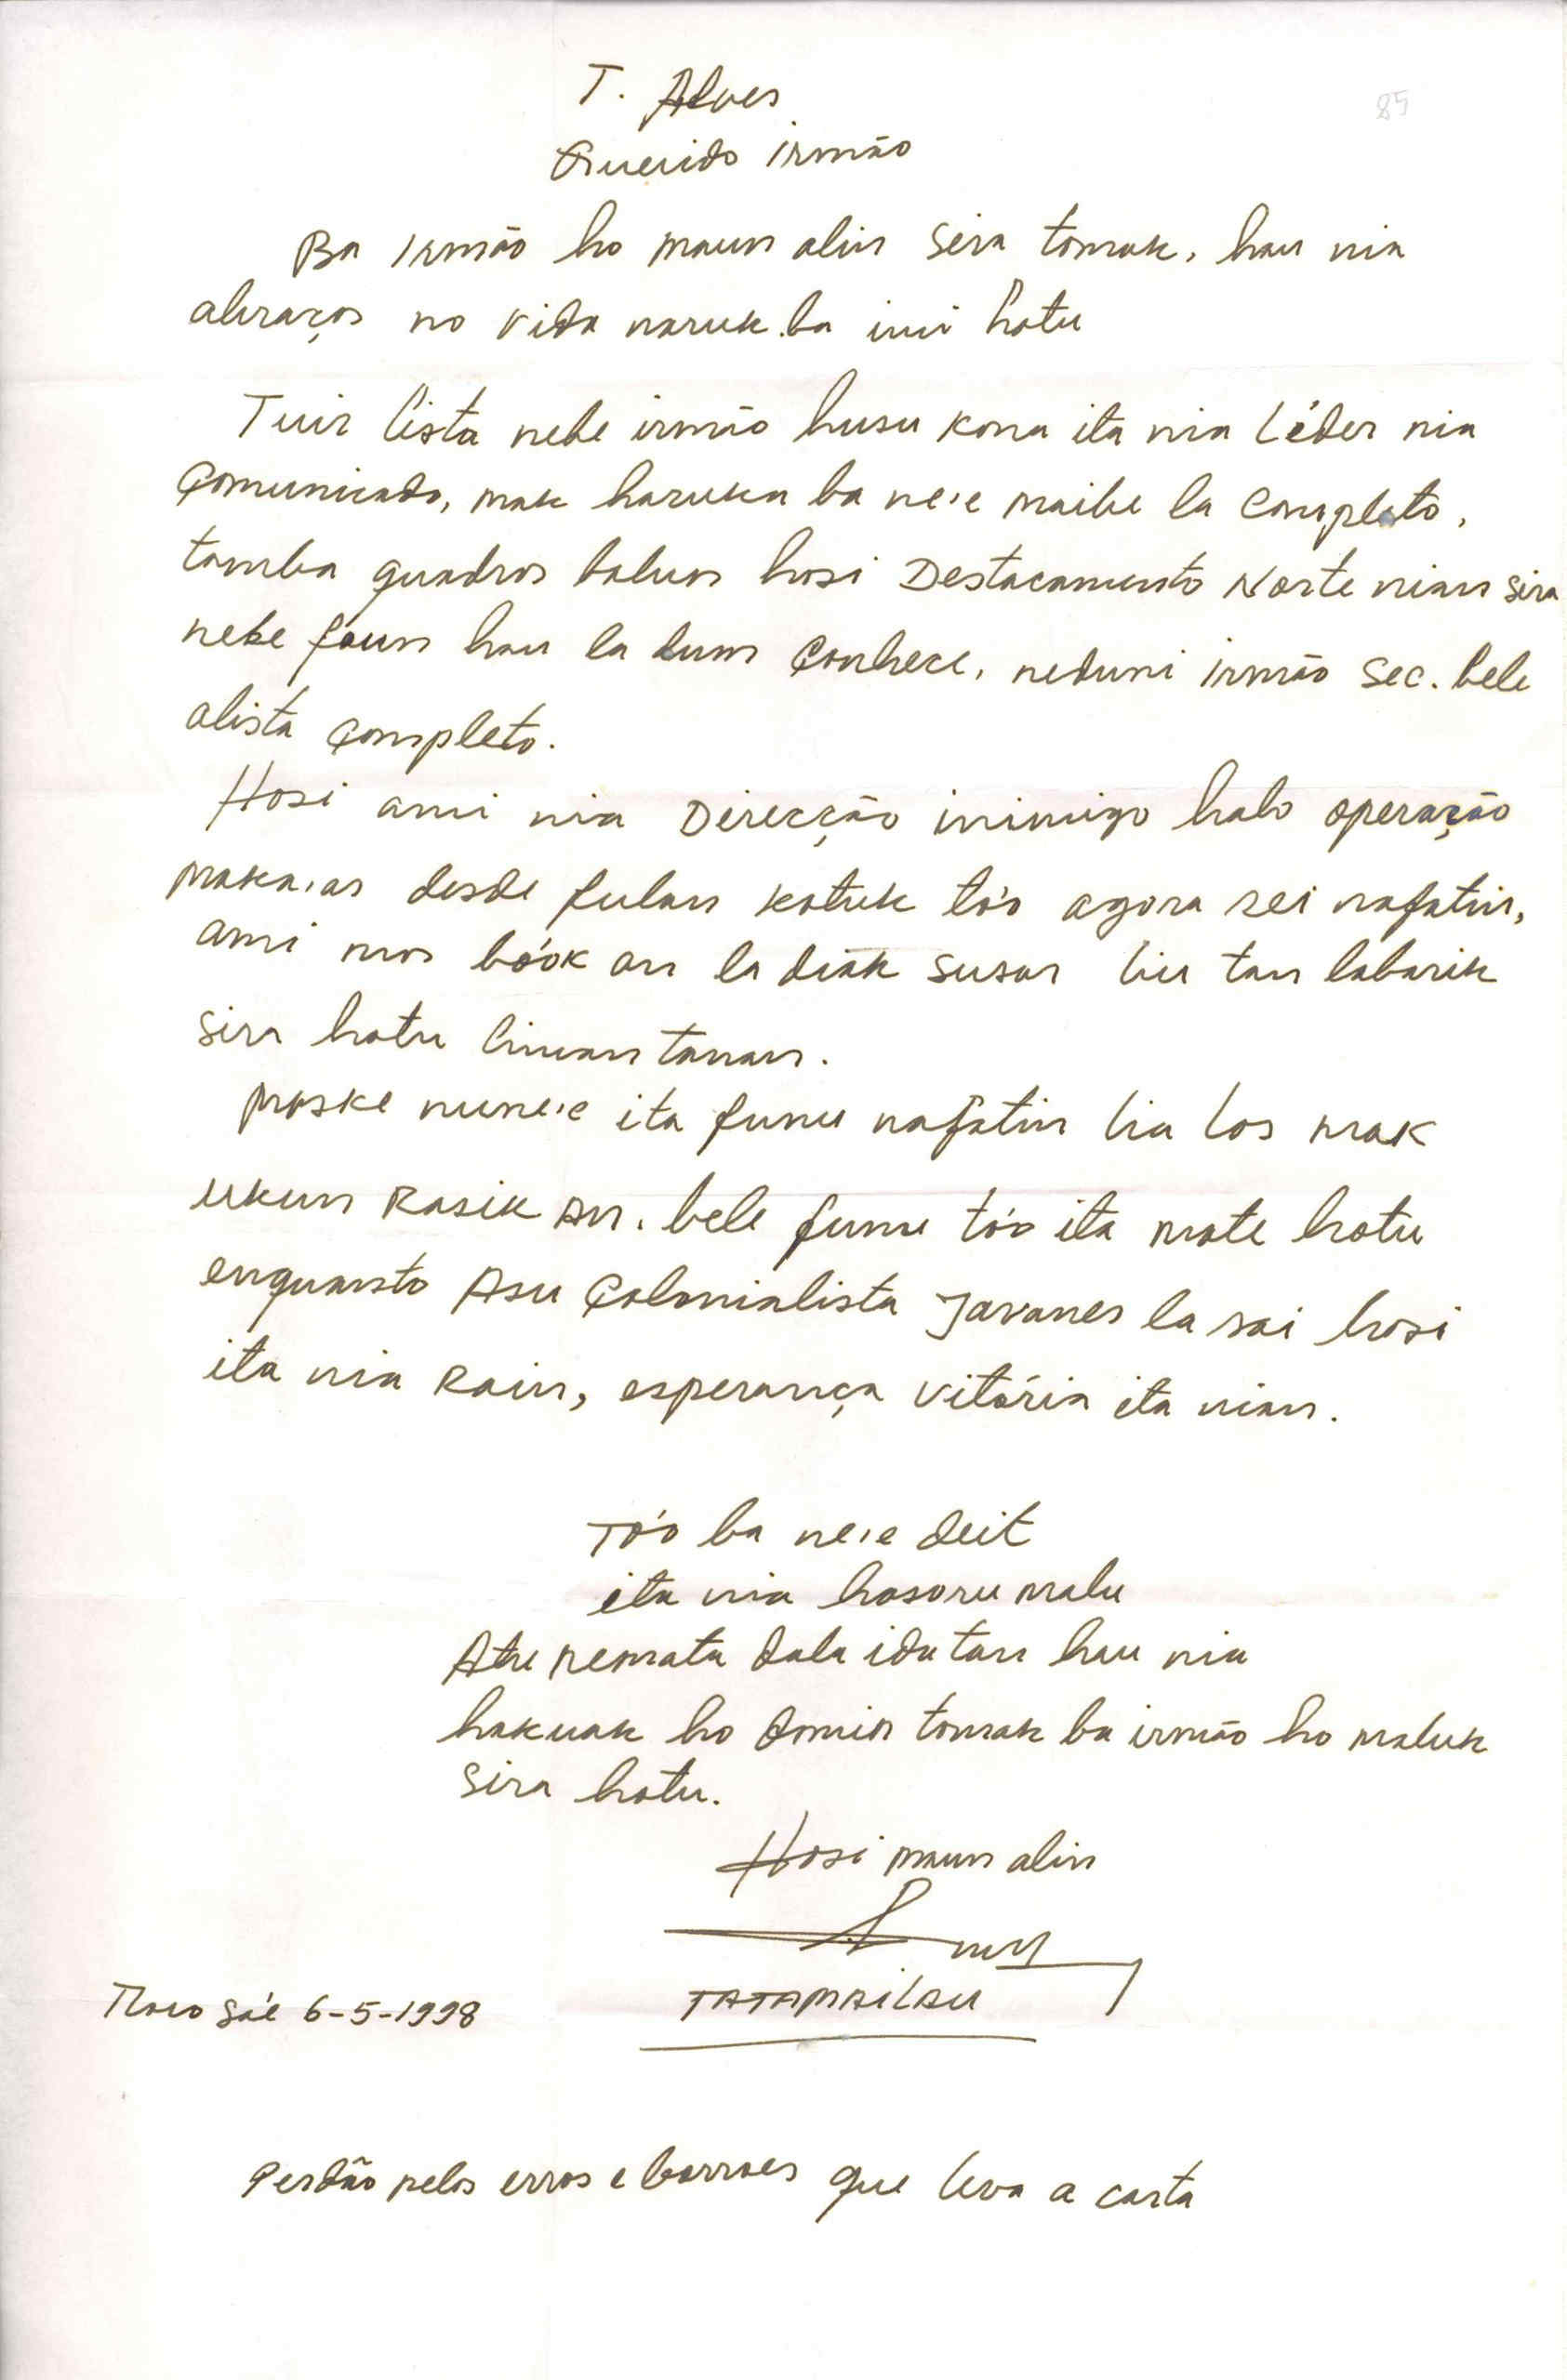 85
T. Alves
Querido irmão
Ba Irmão ho maun alin sira tomak, hau nia
abraços no vida naruk ba imi hotu
Tuir lista nebe irmão husu kona ita nia Léder nia
Comunicado, mak haruka ba ne'e maibe la completo,
tamba quadros balun hosi Destacamento Norte nian sira
nebe foun hau la dum conhece, neduni irmão Sec. bele
alista completo.
Hosi ami nia Direcção inimigo halo operação
maka'as desde fulan kotuk to'o agora sei nafatin,
ami mos bo'ok an la diak susar liu tan labarik
sira hotu liman tanan.
Moske nune'e ita funu nafatin lia los mak
ukun Rasik An. bele funu to'o ita mate hotu
enquanto Asu Colonialista Javanes la sai hosi
ita nia Rain, esperança vitória ita nian.
To'o ba ne'e deit
ita nia hasoru malu
Atu remata dala ida tan hau nia
hakuak ho domin tomak ba irmão ho maluk
sira hotu.
Hosi maun alin
TATAMAILAU
6-5-1998
Perdão pelos erros e borroes que leva a carta